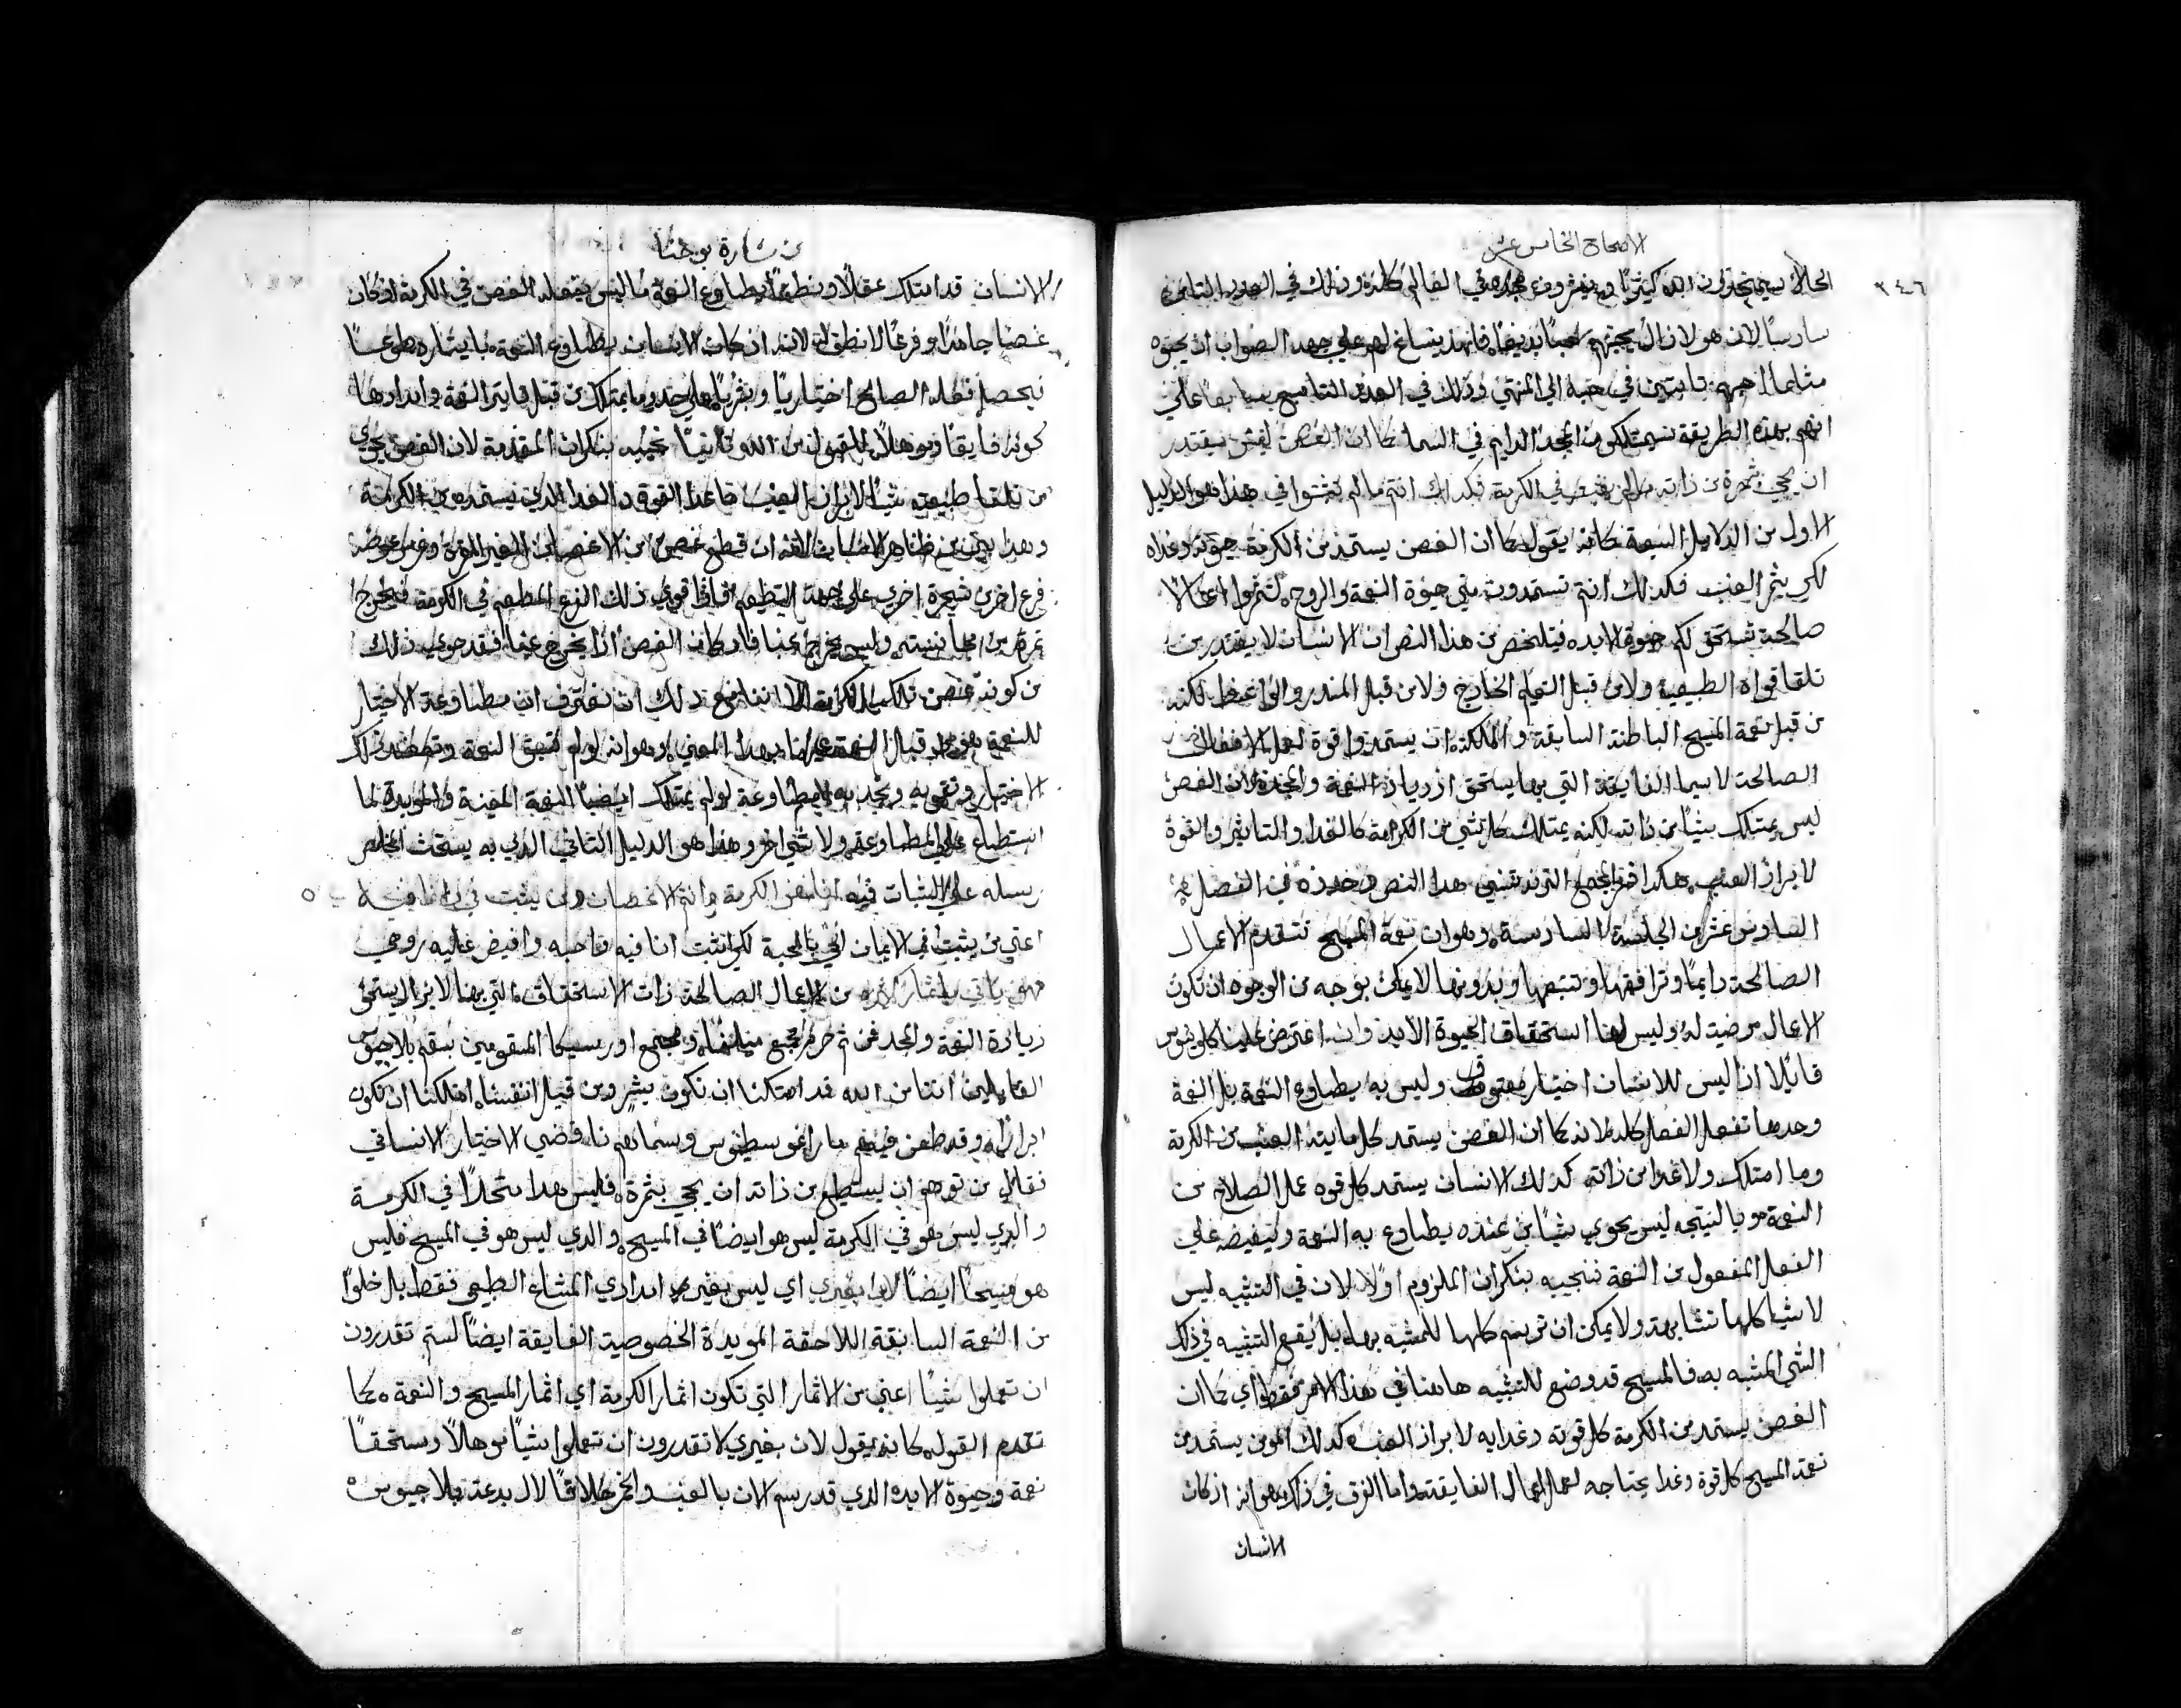 الاصحاح الخامس عشر
٣٤٦
سادسًا لان هولاي الذين يحبهم
مثلما احبهم ثابتين في حبه الي المنتهي وذلك في العدد التاسع
انهم بهذه الطريقة سيمتلكون المجد الدايم في السما كما ان الغصن ليس يقتدر
ان يجي بثمرة من ذاته ما لم يثبت في الكرمة فكذلك انتم ما لم تثبتوا في هذا هو الدليل
الاول من الدلايل السبعة كانه يقول كما ان الغصن يستمد من الكرمة حيوته وغداه
لكي يثمر العنب فكذلك انتم تستمدون مني حيوة النعمة والروح لتثمروا اعمالًا
صالحة تستحق لكم حيوة الابد فيتلخص من هذا النص ان الانسان لا يقتدر من
تلقا قواه الطبيعية ولا من قبل التعليم الخارج ولا من قبل المنذر والواعظ لكنه
من قبل نعمة المسيح الباطنة السابقة والمكملة ان يستمد قوة لعمل الافعال
الصالحة لا سيما الفايقة التي بها يستحق ازدياد النعمة والمجد لان الغصن
ليس يمتلك شيًا من ذاته لكنه يمتلك كل شي من الكرمة كالغدا والتاثير والقوة
لابراز العنب هكذا فسر المجمع التريدنتيني هذا النص وحدده في الفصل
السادس عشر من الجلسة السادسة وهو ان نعمة المسيح تتقدم الاعمال
الصالحة دايمًا وترافقها وتتبعها وبدونها لا يمكن بوجه من الوجوه ان تكون
الاعمال مرضية لله وليس لها استحقاق الحيوة الابدية وان اعترض علينا كلوينوس
قايلًا اذًا ليس للانسان اختيار معتوق وليس به يطاوع النعمة بل النعمة
وحدها تفعل الفعل كله لانه كما ان الغصن يستمد كل مايية العنب من الكرمة
وما امتلك ولا غدا من ذاته كذلك الانسان يستمد كل قوه عمل الصلاح من
النعمة وبالنتيجه ليس يحوي شيًا من عنده يطاوع به النعمة وليفيضه علي
الفعل المفعول من النعمة فنجيبه بنكران الملزوم اولًا لان في التشبيه ليس
الاشيا كلها متشابهة ولا يمكن ان ترسم كلها للمشبه بها بل يقع التشبيه في ذلك
الشي المشبه به فالمسيح قد وضع للتشبيه هاهنا في هذا الامر فقط اي كما ان
الغصن يستمد من الكرمة كل قوته وغدايه لابراز العنب كذلك المومن يستمد من
نعمة المسيح كل قوة وغدا يحتاجه لعمل الاعمال الفايقة واما الفرق في ذلك فهو انه اذ كان
الانسان
من بشارة يوحنا
الانسان قد امتلك عقلًا ونطقًا يطاوع النعمة ما ليس يفعله الغصن في الكرمة اذ كان
غصنًا جامدًا وفرعًا لا نطق له لانه ان كان الانسان يطاوع النعمة بايثاره طوعًا
فيحصل فعله الصالح اختياريًا وبشريًا علي حد ما يمتلك من قبل تاثير النعمة وامدادها
كونه فايقًا وموهلًا للقبول من الله وثانيًا نجيبه بنكران المقدمة لان الغصن يحوي
من تلقا طبيعته شيًا لابراز العنب ماعدا القوة والغدا الذي يستمده من الكرمة
وهذا يبين من ظاهر الحساب لانه ان قطع غصن من الاغصان الغير المثمرة وغرس عوضه
فرع اخر من شجرة اخري علي جهة التطعيم
ثمرة من مجانسته وليس يخرج عنبًا فان كان الغصن اذًا يخرج عنبًا فقد حوي ذلك
من كونه غصن تلك الكرمة الا اننا مع ذلك ان نعترف ان مطاوعة الاختيار
للنعمة هو من قبل النعمة عينها بهذا المعني وهو انه لو لم تسبق النعمة وتعضد ذلك
الاختيار وتقويه وتجذبه للمطاوعة ولو لم يمتلك ايضًا النعمة المعينة والمويدة لما
استطاع علي المطاوعة ولا شي اخر وهذا هو الدليل الثاني الذي به يستحث المخلص
رسله علي الثبات فيه انا هو الكرمة وانتم الاغصان ومن يثبت في وانا فيه
اعني من يثبت في الايمان الحي بالمحبة لكي اثبت انا فيه فاحبه وافيض عليه روحي
فهو ياتي باثمار كثيرة من الاعمال الصالحة ذات الاستحقاق التي بها لا يزال يستحق
زيادة النعمة والمجد فمن ثم حرم مجمع ميلانة ومجمع اورسيكا المقومين بسقم بالاجيوس
القايلين اننا من الله قد امكننا ان نكون بشر ومن قبل انفسنا امكننا ان نكون
ابرارًا وقد طعن فيهم مار اغوسطينوس وسماهم ناقضي الاختيار الانساني
فقال من توهم انه يستطيع من ذاته ان يجي بثمرة فليس هذا متحدًا في الكرمة
والذي ليس هو في الكرمة ليس هو ايضًا في المسيح والذي ليس هو في المسيح فليس
هو مسيحيًا ايضًا لان بغيري اي ليس بغير امدادي المشاع الطبيعي فقط بل خلوًا
من النعمة السابقة اللاحقة المويدة الخصوصية الفايقة ايضًا لستم تقدرون
ان تعملوا شيًا اعني من الاثمار التي تكون اثمار الكرمة اي اثمار المسيح والنعمة كما
تقدم القول كانه يقول لان بغيري لا تقدرون ان تعملوا شيًا موهلًا ومستحقًا
نعمة وحيوة الابد الذي قد رسم الان بالعنب والخمر خلافًا لال بدعة بلاجيوس